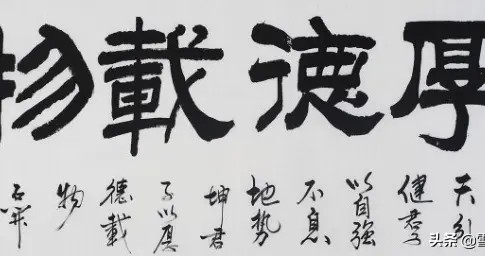 厚德載物
天行
健君子
以自強
不息
地勢
坤君
子以厚
德載
物
石開
头条 @雪